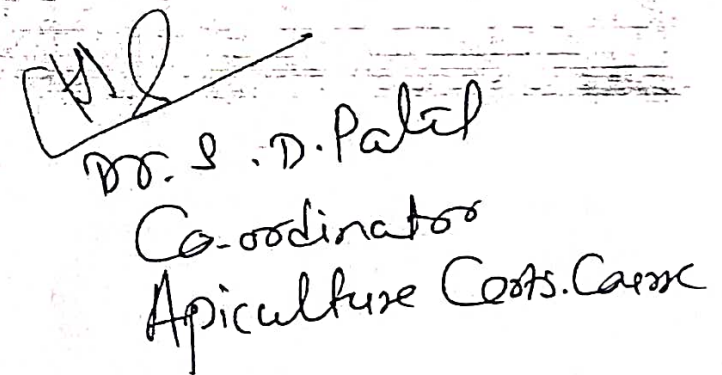 Dr. S. D. Patil
Co-ordinator
Apiculture Certs. Course